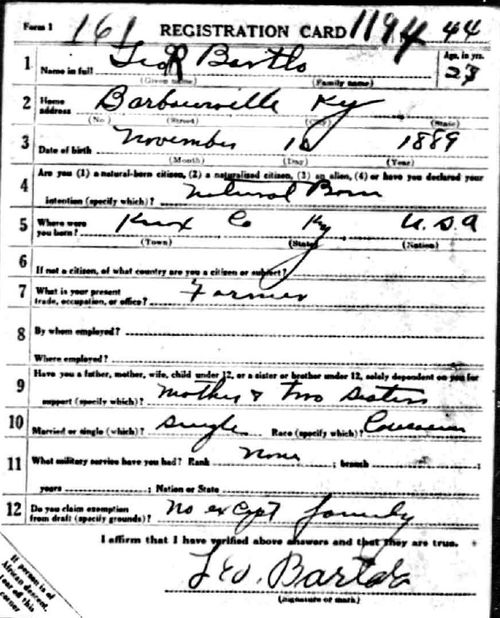 Form 1 161 REGISTRATION CARD 1194 44
1 Name in full Geo R Bartls Age, in yrs. 23
(Given name) (Family name)
2 Home address Barbourville Ky
(No.) (Street) (City) (State)
3 Date of birth November 10 1889
(Month) (Day) (Year)
Are you (1) a natural-born citizen, (2) a naturalized citizen, (3) an alien, (4) or have you declared your
4 intention (specify which)? Natural Born
5 Where were you born? Knox Co Ky. U.S.A
(Town) (State) (Nation)
6 If not a citizen, of what country are you a citizen or subject?
7 What is your present trade, occupation, or office? Farmer
8 By whom employed?
Where employed?
9 Have you a father, mother, wife, child under 12, or a sister or brother under 12, solely dependent on you for
support (specify which)? Mother & two sisters
10 Married or single (which)? Single Race (specify which)?
11 What military service have you had? Rank None ; branch ;
years ; Nation or State
12 Do you claim exemption from draft (specify grounds)? No except family
I affirm that I have verified above answers and that they are true.
Geo. Bartls
(Signature or mark)
If person is of
African descent,
tear off this
corner